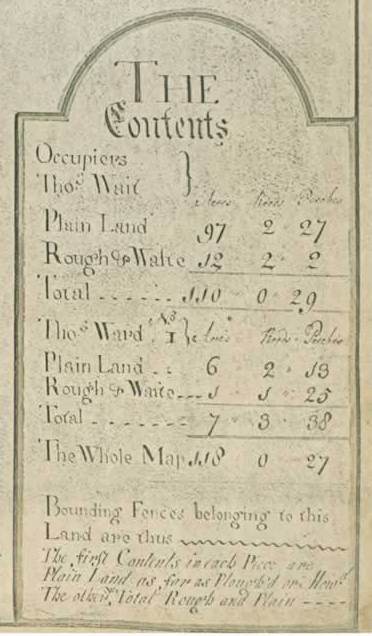 THE
Contents
Occupiers
Thos. Wait }
Acres Roods Perches
Plain Land 97 2 27
Rough & Waste 12 2 2
Total - - - - - - 110 0 29
Thos. Ward No. 1 } Acres Roods Perches
Plain Land - - 6 2 13
Rough & Waste - - - 1 1 25
Total - - - - - - - 7 3 38
The Whole Map 118 0 27
Bounding Fences belonging to this
Land are thus
The first Contents in each Piece are
Plain Land as far as Plough'd or Mow'd
The other, Total Rough and Plain - - - -